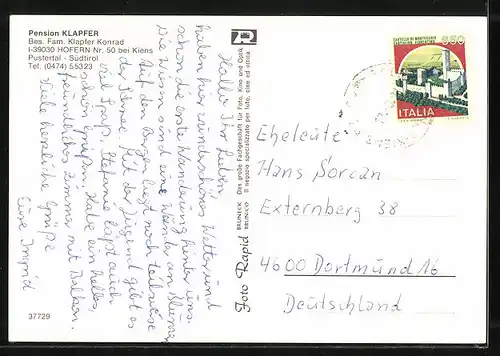 Pension KLAPFER
Bes. Fam. Klapfer Konrad
I-39030 HOFERN Nr. 50 bei Kiens
Pustertal - Südtirol
Tel. (0474) 55323
Hallo Ihr Lieben
haben hier wunderschönes Wetter und
schon die erste Wanderung hinter uns.
Die Wiesen sind eine Wonne an Blumen
Auf den Bergen liegt noch teilweise
der Schnee. Mit der Jugend gibt es
viel Spaß. Stefanie läßt auch
schön grüßen. Habe ein helles,
freundliches Zimmer mit Balkon.
Viele herzliche Grüße
Eure Ingrid
37729
Foto Rapid
BRUNECK
BRUNICO
Das große Fachgeschäft für Foto, Kino und Optik
Il negozio specializzato per foto, cine ed ottica
CASTELLO DI MONTECCHIO
CASTIGLION FIORENTINO
850
ITALIA
Eheleute
Hans Sorcan
Externberg 38
4600 Dortmund 16
Deutschland